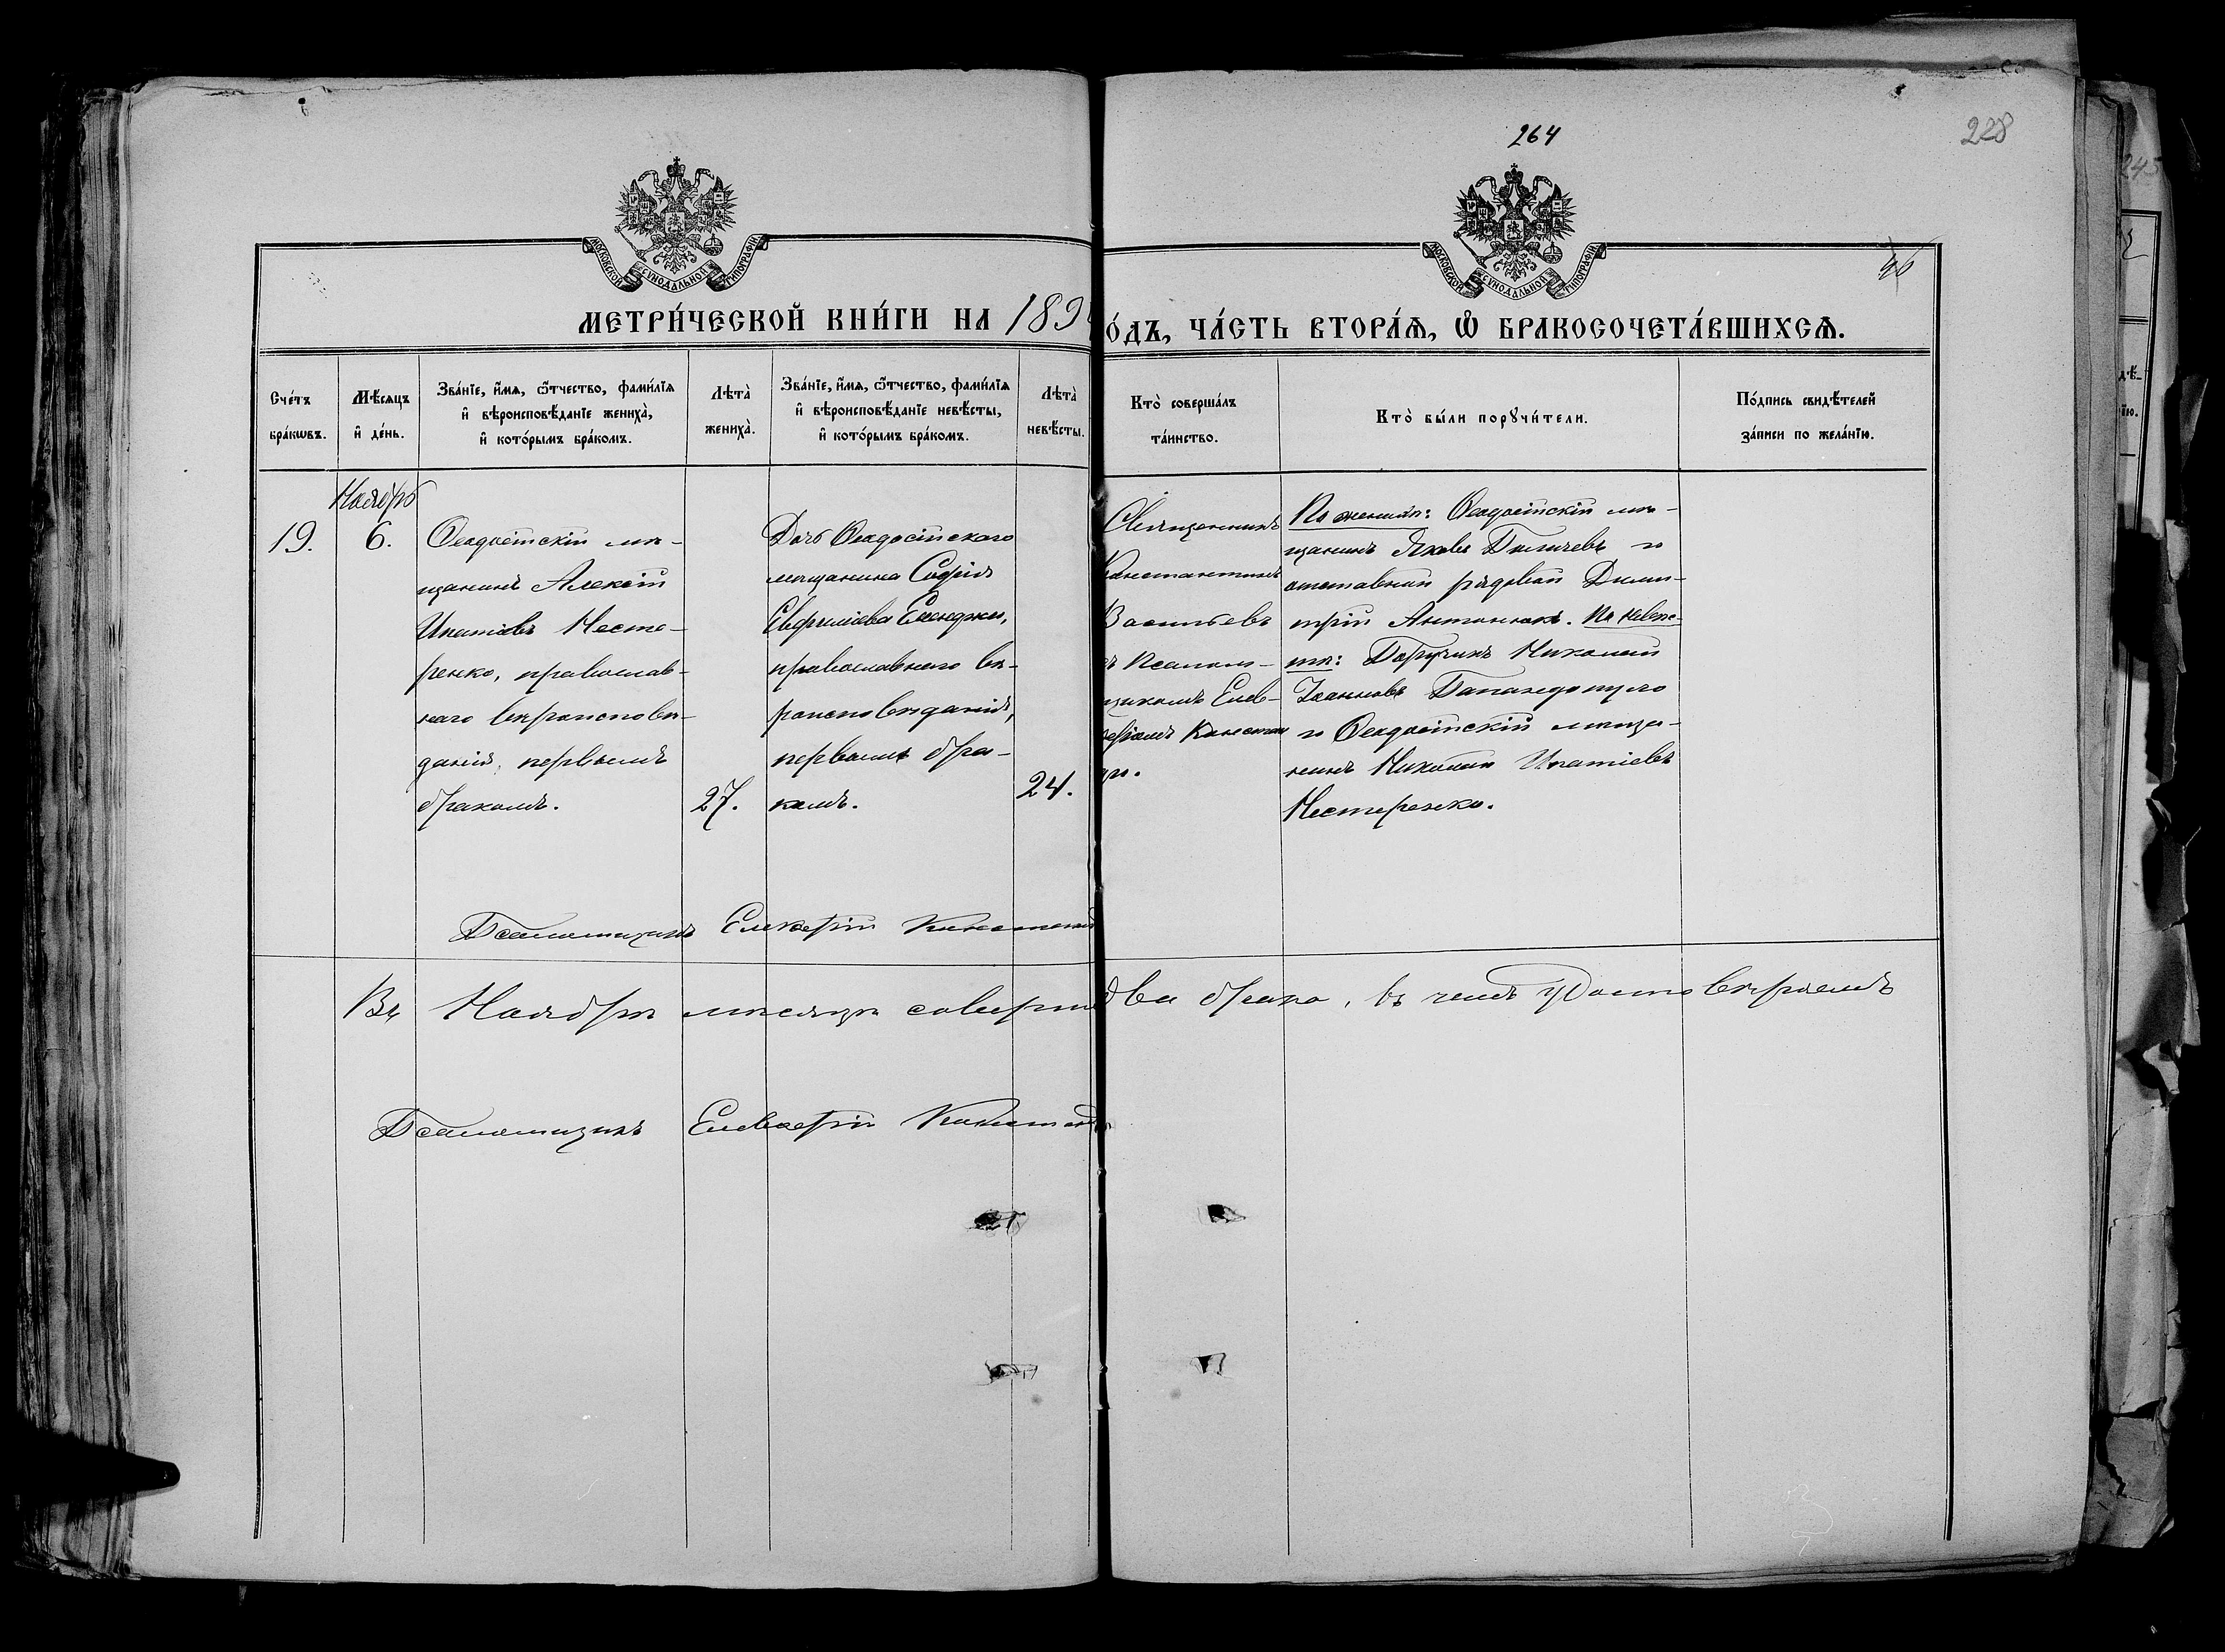 264
228
МОСКОВСКОЙ СѴНОДАЛЬНОЙ ТИПОГРАФІИ
МОСКОВСКОЙ СѴНОДАЛЬНОЙ ТИПОГРАФІИ
МЕТРИ́ЧЕСКОЙ КНИ́ГИ НА 189
О́ДЪ, ЧА́СТЬ ВТОРА́Ѧ, Ѡ҆ БРАКОСОЧЕТА́ВШИХСѦ.
Сче́тъ
бра́кѡвъ.
Мѣ́сяцъ
и҆ де́нь.
Зва́нїе, и҆́мѧ, ѻ҆́тчество, фами́лїѧ
и҆ вѣроисповѣ́данїе жениха̀,
и҆ кото́рымъ бра́комъ.
Лѣта̀
жениха̀.
Зва́нїе, и҆́мѧ, ѻ҆́тчество, фами́лїѧ
и҆ вѣроисповѣ́данїе невѣ́сты,
и҆ кото́рымъ бра́комъ.
Лѣта̀
невѣ́сты.
Кто̀ соверша́лъ
та́инство.
Кто̀ бы́ли порꙋчи́тели.
По́дпись свидѣ́телей
за́писи по жела́нїю.
Ноябрь
19.
6.
Ѳеодосійскій мѣ-
щанинъ Алексій
Ипатіевъ Несте-
ренко, православ-
наго вѣроисповѣ-
данія, первымъ
бракомъ.
27.
Дочь Ѳеодосійскаго
мѣщанина Софія
Евфиміева
православнаго вѣ-
роисповѣданія,
первымъ бра-
комъ.
24.
Священникъ
Константинъ
Васильевъ
съ псалом-
щикомъ Елев-
ѳеріемъ
По женихѣ: Ѳеодосійскій мѣ-
щанинъ Яковъ и
отставной рядовой Дими-
трій Антонюкъ. По невѣс-
тѣ: Поручикъ Николай
Іоанновъ Папандопуло
и Ѳеодосійскій мѣща-
нинъ Николай Ипатіевъ
Нестеренко.
Псаломщикъ Елевѳерій
Въ Ноябрѣ мѣсяцѣ соверше два брака, въ чемъ удостовѣряемъ
Псаломщикъ Елевѳерій